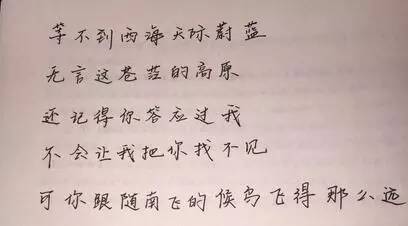 等不到西海天际蔚蓝
无言这苍茫的高原
还记得你答应过我
不会让我把你找不见
可你跟随南飞的候鸟飞得那么远